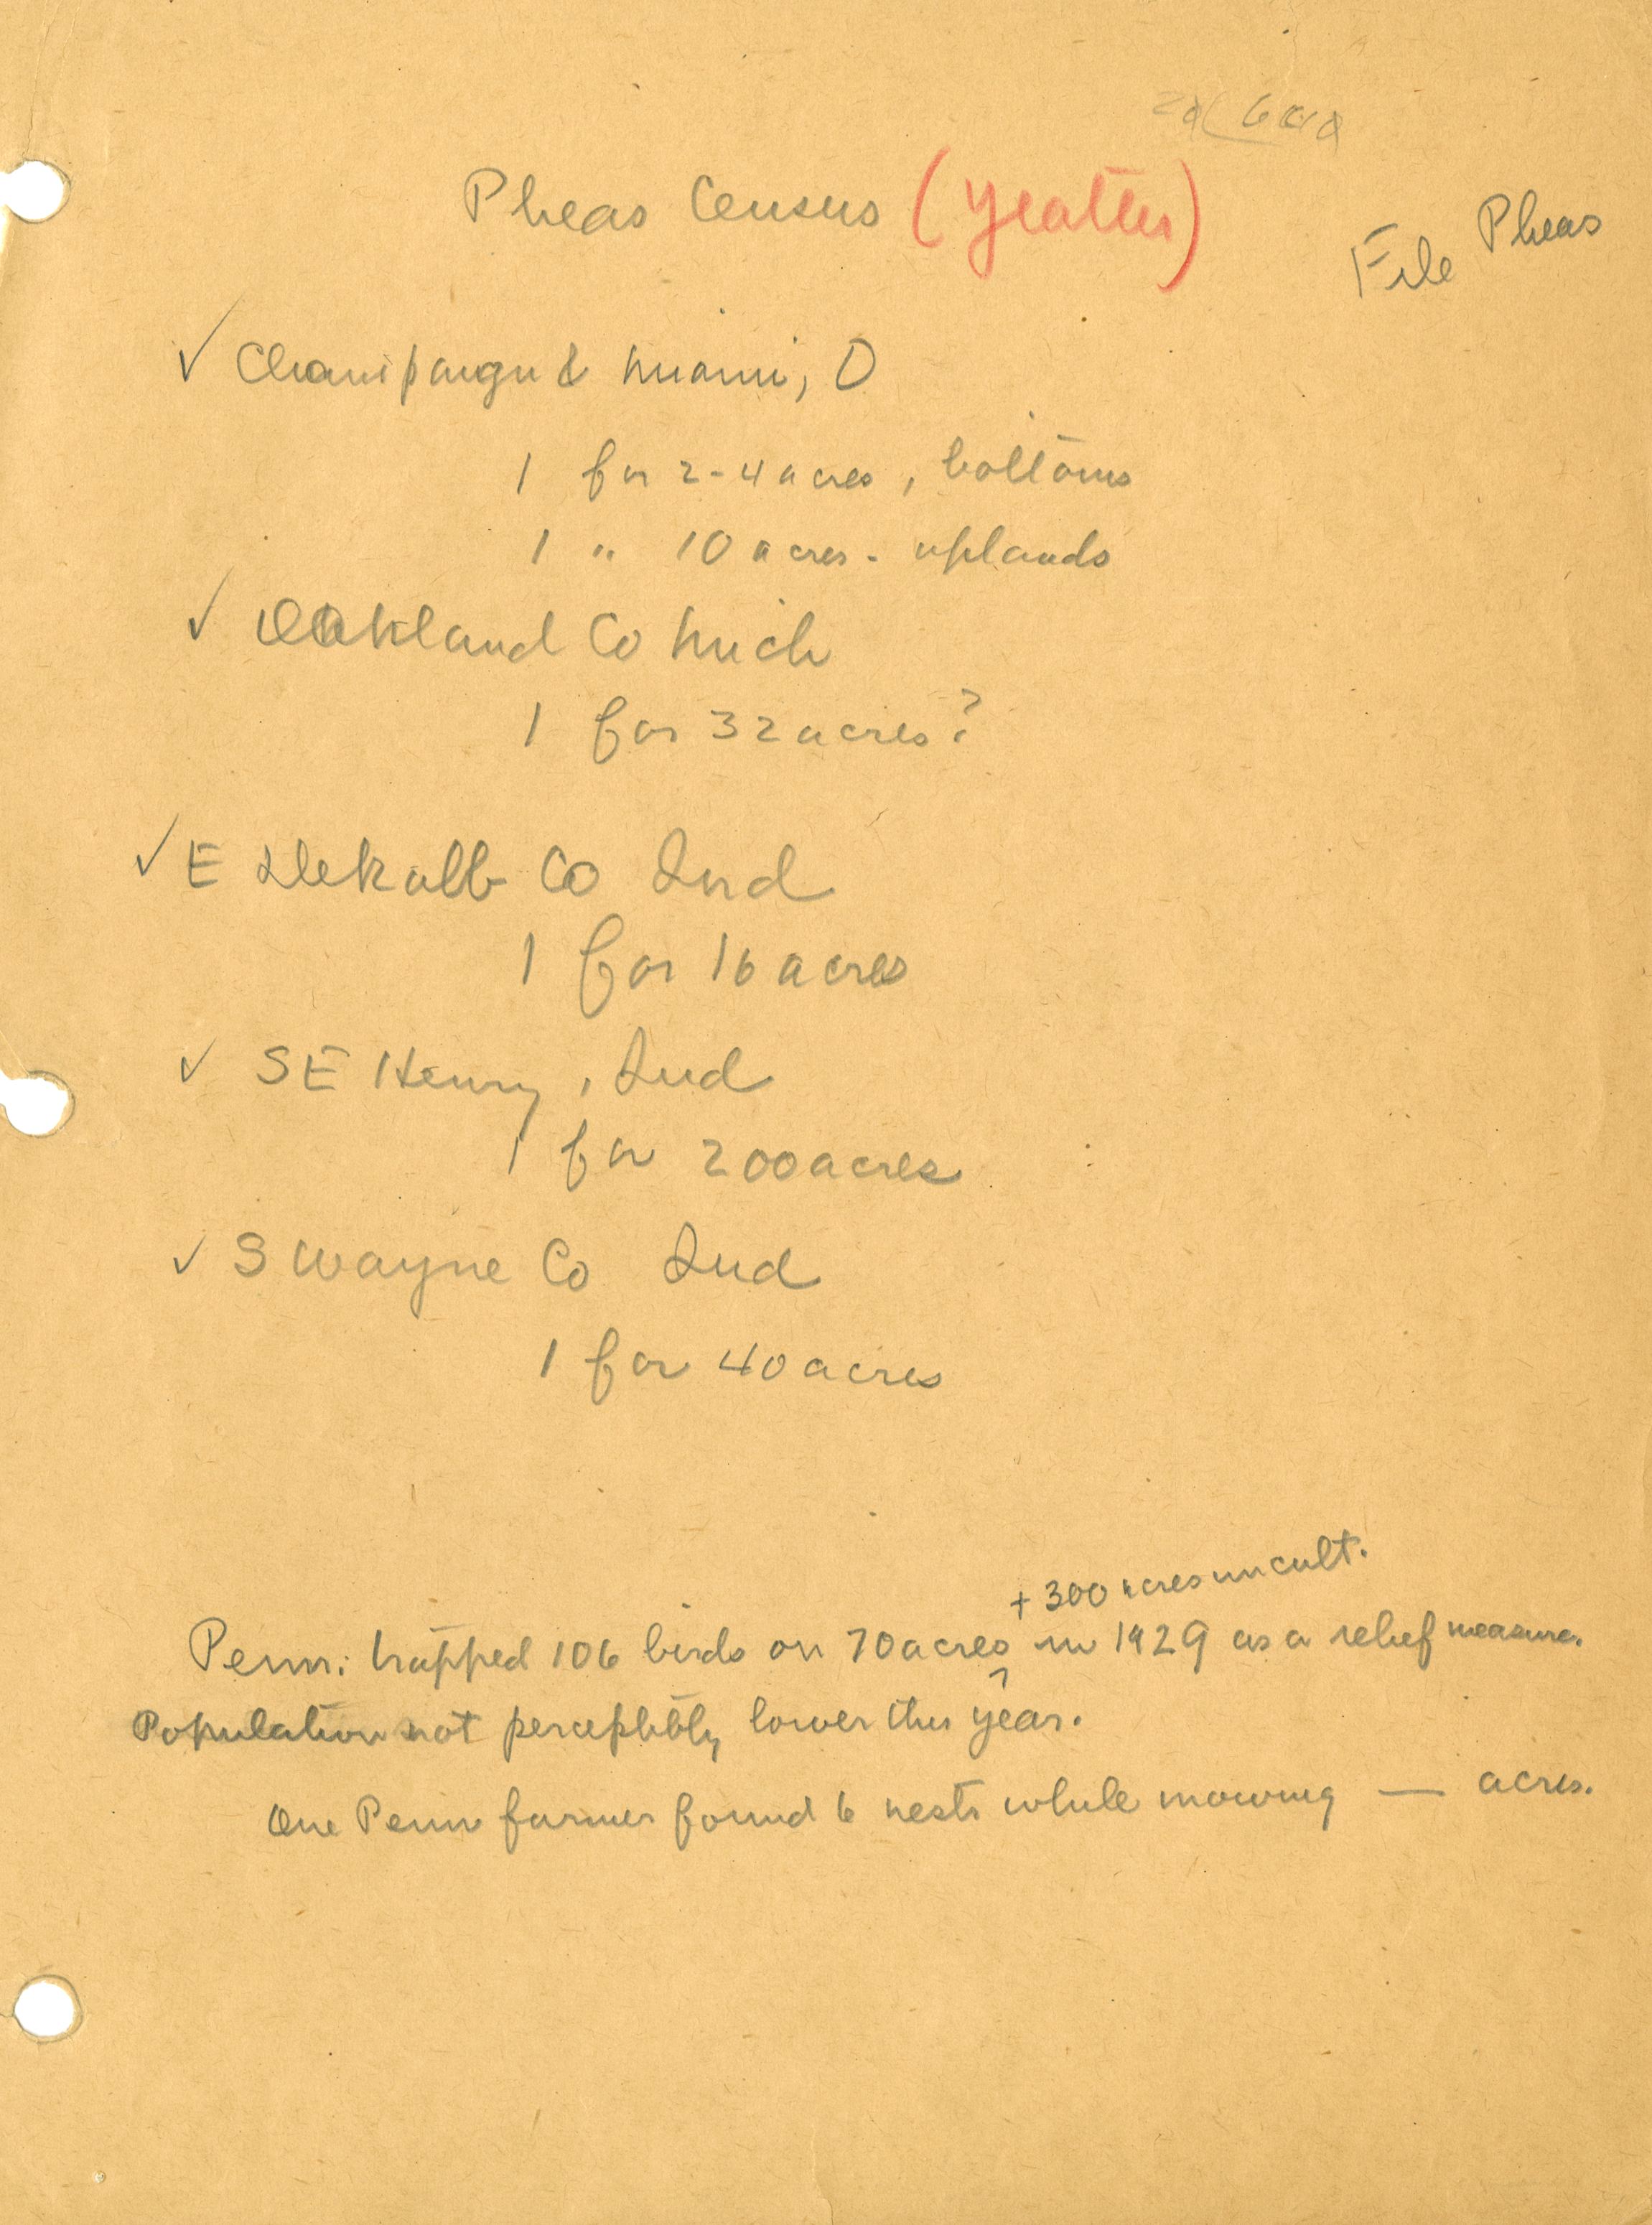 Pheas Census (Yeatter)
File Pheas
✓ Champaign & Miami, O
1 for 2-4 acres, bottoms
1 " 10 acres - uplands
✓ Oakland Co Mich
1 for 32 acres?
✓ E Dekalb Co Ind
1 for 16 acres
✓ SE Henry, Ind
1 for 200 acres
✓ S Wayne Co Ind
1 for 40 acres
+ 300 acres uncult.
Penn: trapped 106 birds on 70 acres ^ in 1929 as a relief measure.
Population not perceptibly lower this year.
One Penn farmer found 6 nests while mowing — acres.